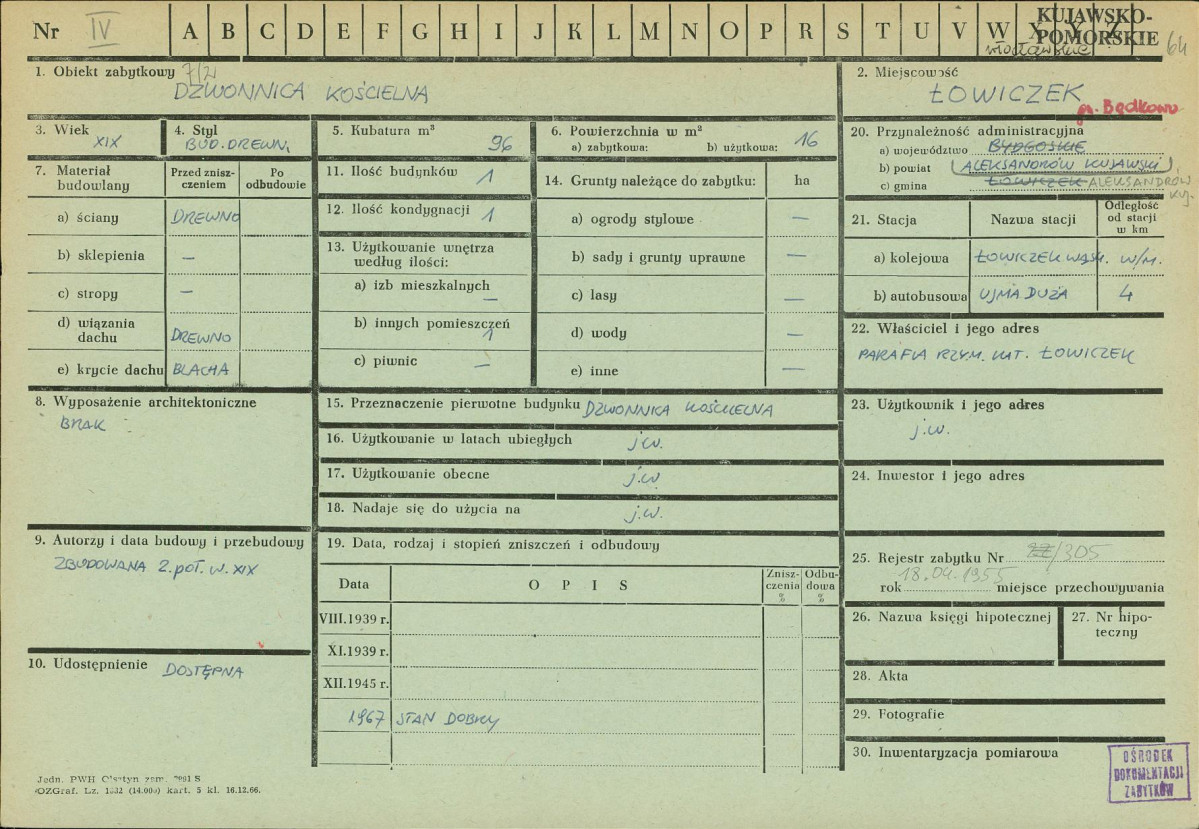 Nr IV A B C D E F G H I J K L M N O P R S T U V W X Y Z KUJAWSKO-
POMORSKIE 64
włocławskie
1. Obiekt zabytkowy 7/2
DZWONNICA KOŚCIELNA
2. Miejscowość
ŁOWICZEK
gm. Bądkowo
3. Wiek
XIX
4. Styl
BUD. DREWN.
5. Kubatura m³
96
6. Powierzchnia w m²
a) zabytkowa: b) użytkowa: 16
20. Przynależność administracyjna
a) województwo BYDGOSKIE
b) powiat ALEKSANDRÓW KUJAWSKI
c) gmina ŁOWICZEK ALEKSANDRÓW
Kuj.
7. Materiał
budowlany
Przed znisz-
czeniem
Po
odbudowie
a) ściany DREWNO
b) sklepienia —
c) stropy —
d) wiązania
dachu DREWNO
e) krycie dachu BLACHA
11. Ilość budynków 1
12. Ilość kondygnacji 1
13. Użytkowanie wnętrza
według ilości:
a) izb mieszkalnych —
b) innych pomieszczeń 1
c) piwnic —
14. Grunty należące do zabytku: ha
a) ogrody stylowe —
b) sady i grunty uprawne —
c) lasy —
d) wody —
e) inne —
21. Stacja Nazwa stacji Odległość
od stacji
w km
a) kolejowa ŁOWICZEK WĄSK. W/M.
b) autobusowa UJMA DUŻA 4
22. Właściciel i jego adres
PARAFIA RZYM. KAT. ŁOWICZEK
8. Wyposażenie architektoniczne
BRAK
15. Przeznaczenie pierwotne budynku DZWONNICA KOŚCIELNA
16. Użytkowanie w latach ubiegłych j.w.
17. Użytkowanie obecne j.w
18. Nadaje się do użycia na j.w.
23. Użytkownik i jego adres
j.w.
24. Inwestor i jego adres
9. Autorzy i data budowy i przebudowy
ZBUDOWANA 2. POŁ. W. XIX
10. Udostępnienie DOSTĘPNA
19. Data, rodzaj i stopień zniszczeń i odbudowy
Data O P I S Znisz-
czenia
% Odbu-
dowa
%
VIII.1939 r.
XI.1939 r.
XII.1945 r.
1967 STAN DOBRY
25. Rejestr zabytku Nr /305
18.04.1955
rok miejsce przechowywania
26. Nazwa księgi hipotecznej
27. Nr hipo-
teczny
28. Akta
29. Fotografie
30. Inwentaryzacja pomiarowa
OŚRODEK
DOKUMENTACJI
ZABYTKÓW
Jedn. PWH Olsztyn zam. S
OZGraf. Lz. 1932 (14.000) kart. 5 kl. 16.12.66.